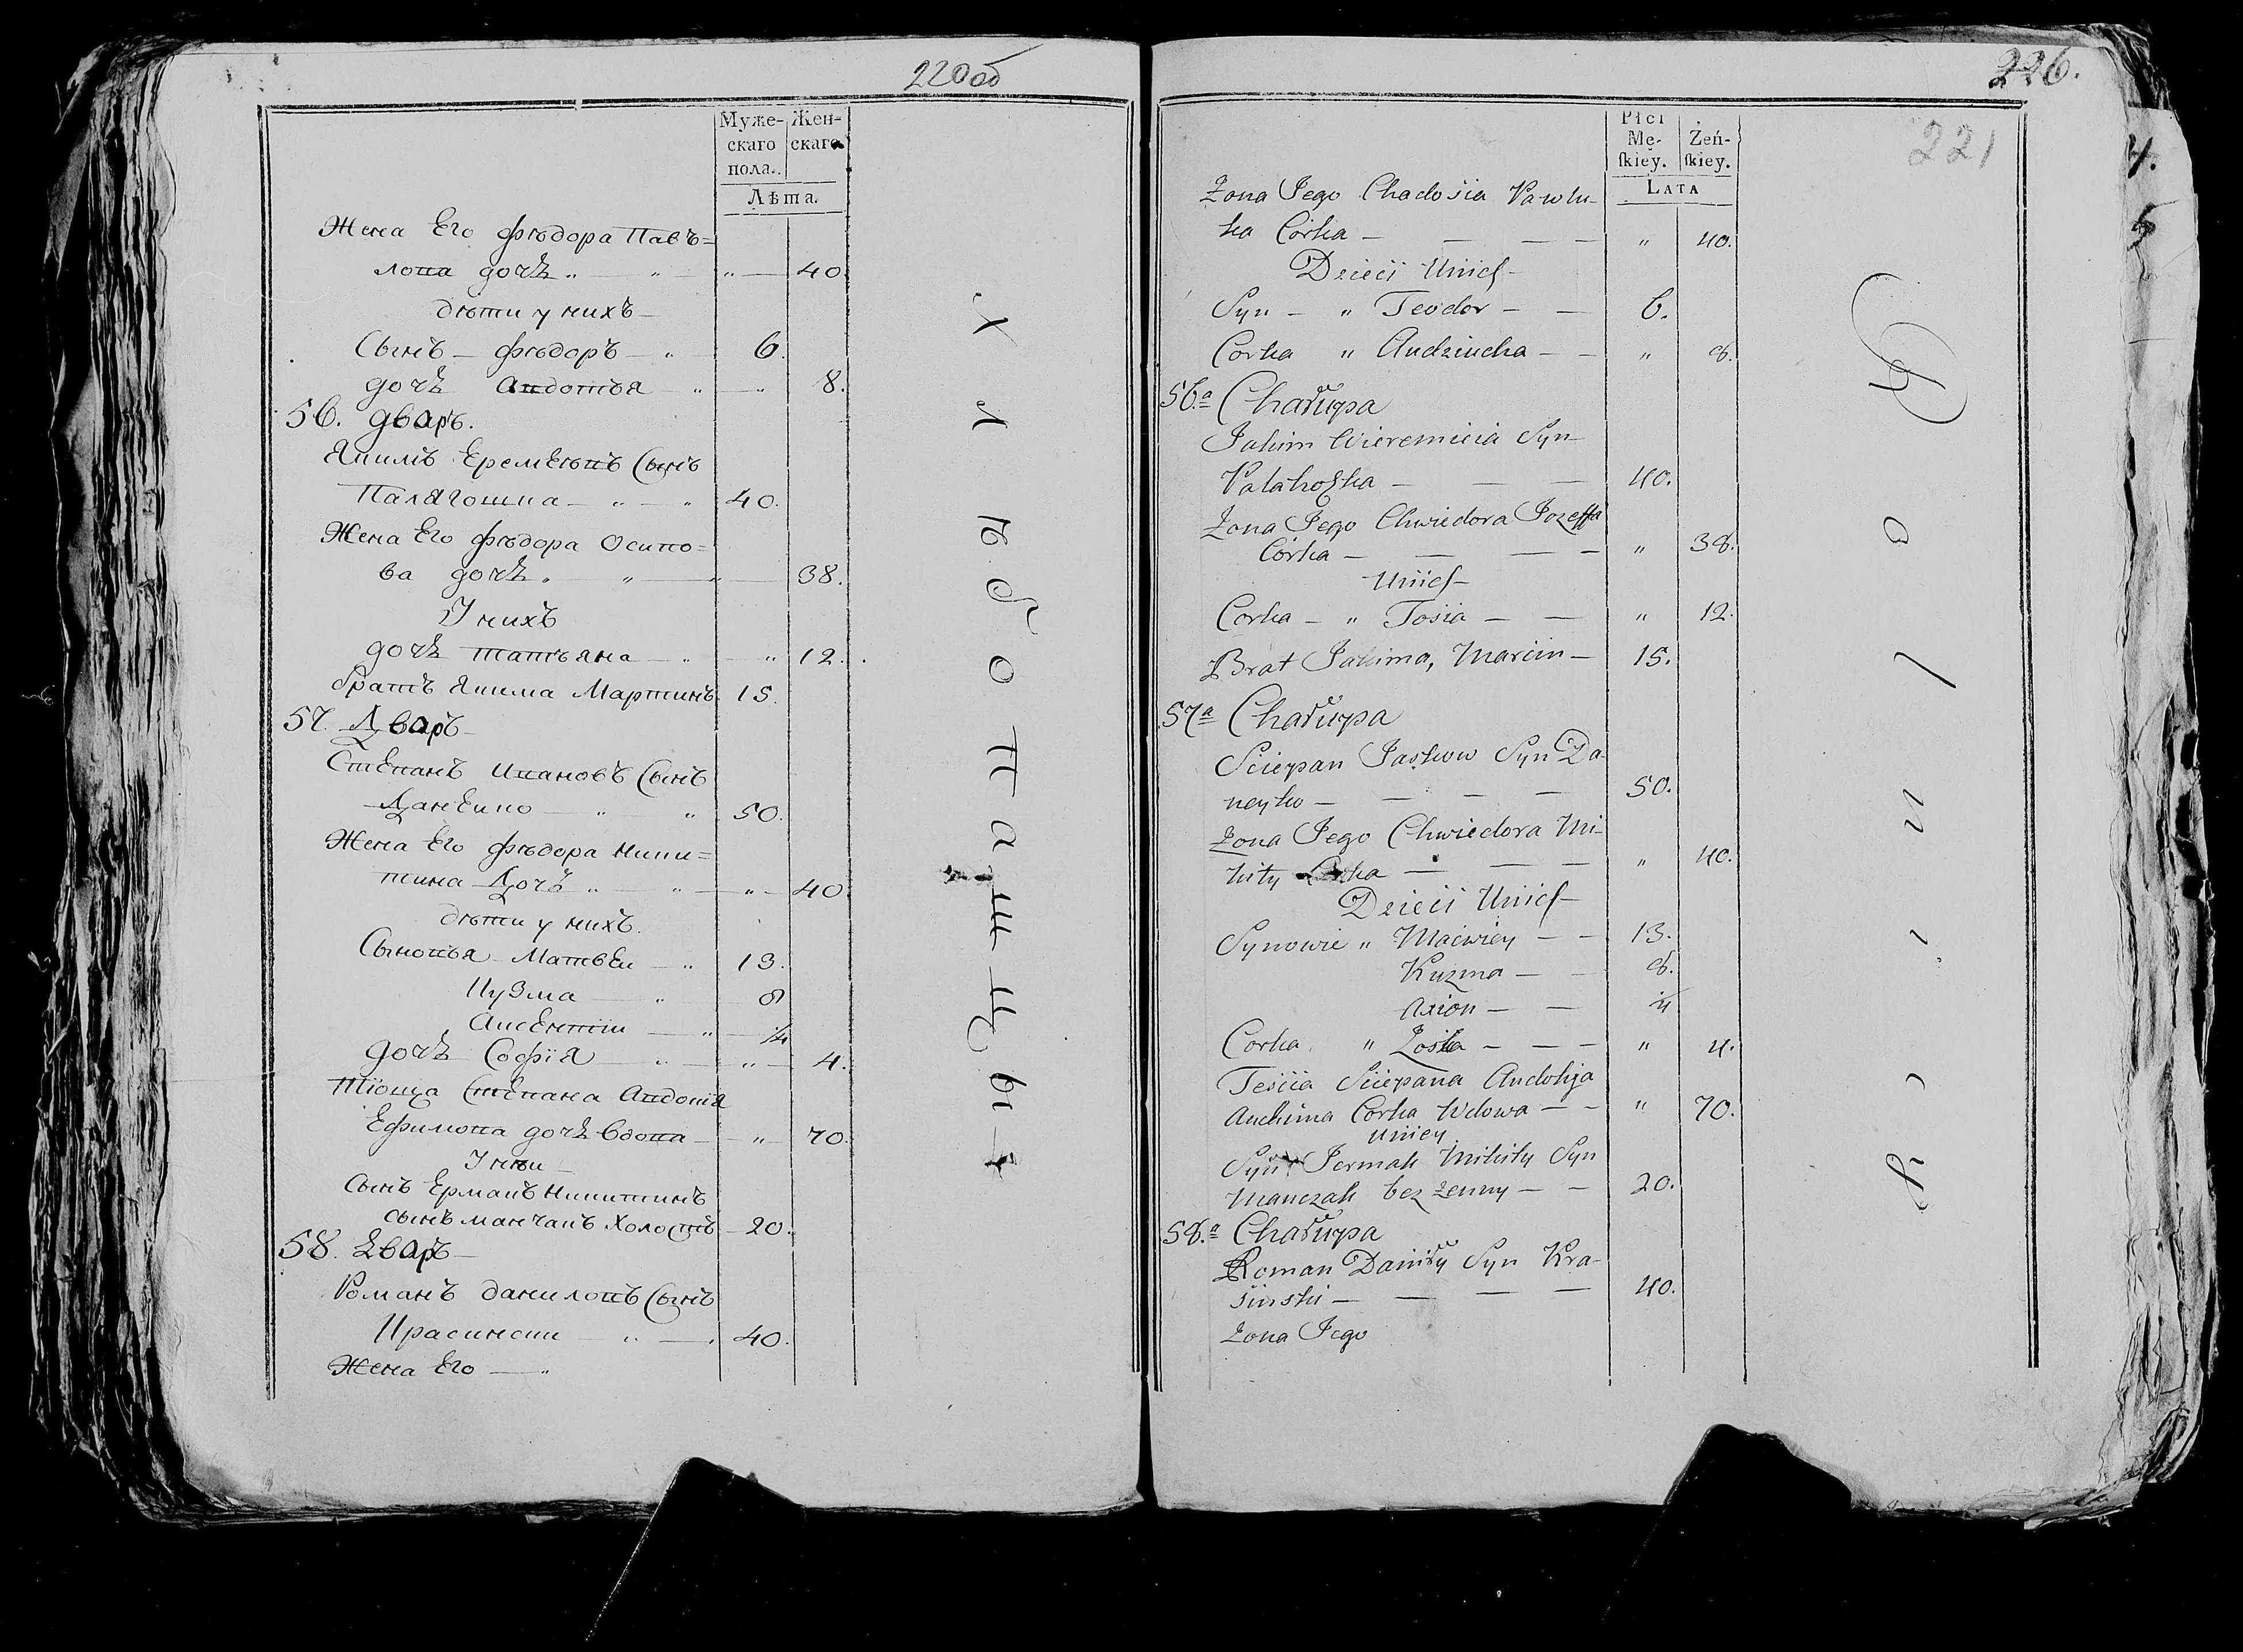 220об
Муже-
скаго
пола.
Жен-
скаго
Лѣта.
Жена Его Фѣдора Павъ=
лова дочь „ „ „ 40
дѣти у нихъ
Сынъ — Фѣдоръ — „ 6.
дочь Авдотья „ „ 8.
56. дваръ.
Якимъ Еремѣевъ Сынъ
Палягошка — „ — „ 40.
Жена Его Фѣдора Осипо=
ва дочь „ „ „ 38.
У нихъ
дочь татьяна — „ „ 12.
братъ Якима Мартинъ 15.
57. Дваръ
Степанъ Ивановъ Сынъ
Данейко — „ „ 50.
Жена Его Фѣдора Ники=
тина Дочь „ „ „ 40.
дѣти у нихъ.
Сыновья Матвѣй — „ 13.
Кузма — „ 8
Аксентій — „ ¼
дочь Софія „ „ 4.
Тіоща Степана Авдотя
Ефимова дочь вдова — „ 70.
У нѣи
Сынъ Ермакъ Никитинъ
сынъ манчакъ холостъ 20.
58. Дваръ
Романъ даниловъ Сынъ
Красински — „ — 40.
Жена Его — „
Хлѣбопашцы
226.
221
Płci
Mę-
ſkiey.
Żeń-
ſkiey.
LATA
Żona Jego Chadosia Pawlu-
ka Córka — — — — „ 40.
Dzieci Unich
Syn — „ Teodor — — 6.
Corka „ Audziucha — — „ 8.
56.a Chałupa
Jakim Wieremieia Syn
Palahoszka — — — 40.
Żona Jego Chwiedora Jozeffa
Córka — — — — „ 38.
Unich
Corka — „ Tosia — — „ 12.
Brat Jakima, Marcin — 15.
57a Chałupa
Sciepan Jaskow Syn Da-
neyko — — — — 50.
Żona Jego Chwiedora Mi-
kity Corka — — — „ 40.
Dzieci Unich
Synowie „ Maćwiey — — 13.
Kuzma — — 8.
Axion — — ¼
Corka „ Zoska — — — „ 4.
Teścia Sciepana Audotija
Auchima Corka Wdowa — — „ 70.
Uniey
Syn Jermak Mikity Syn
Manczak bez żenny — — 20.
58.a Chałupa
Roman Daniły Syn Kra-
sinski — — — — 40.
Żona Jego
Rolnicy